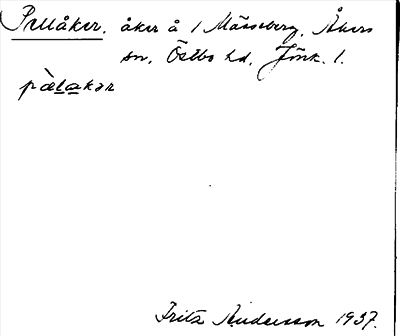 Pellåker. åker å 1 Mässeberg, Åkers
sn, Östbo hd, Jönk. l.
pæ̀lakər
Fritz Andersson 1937.